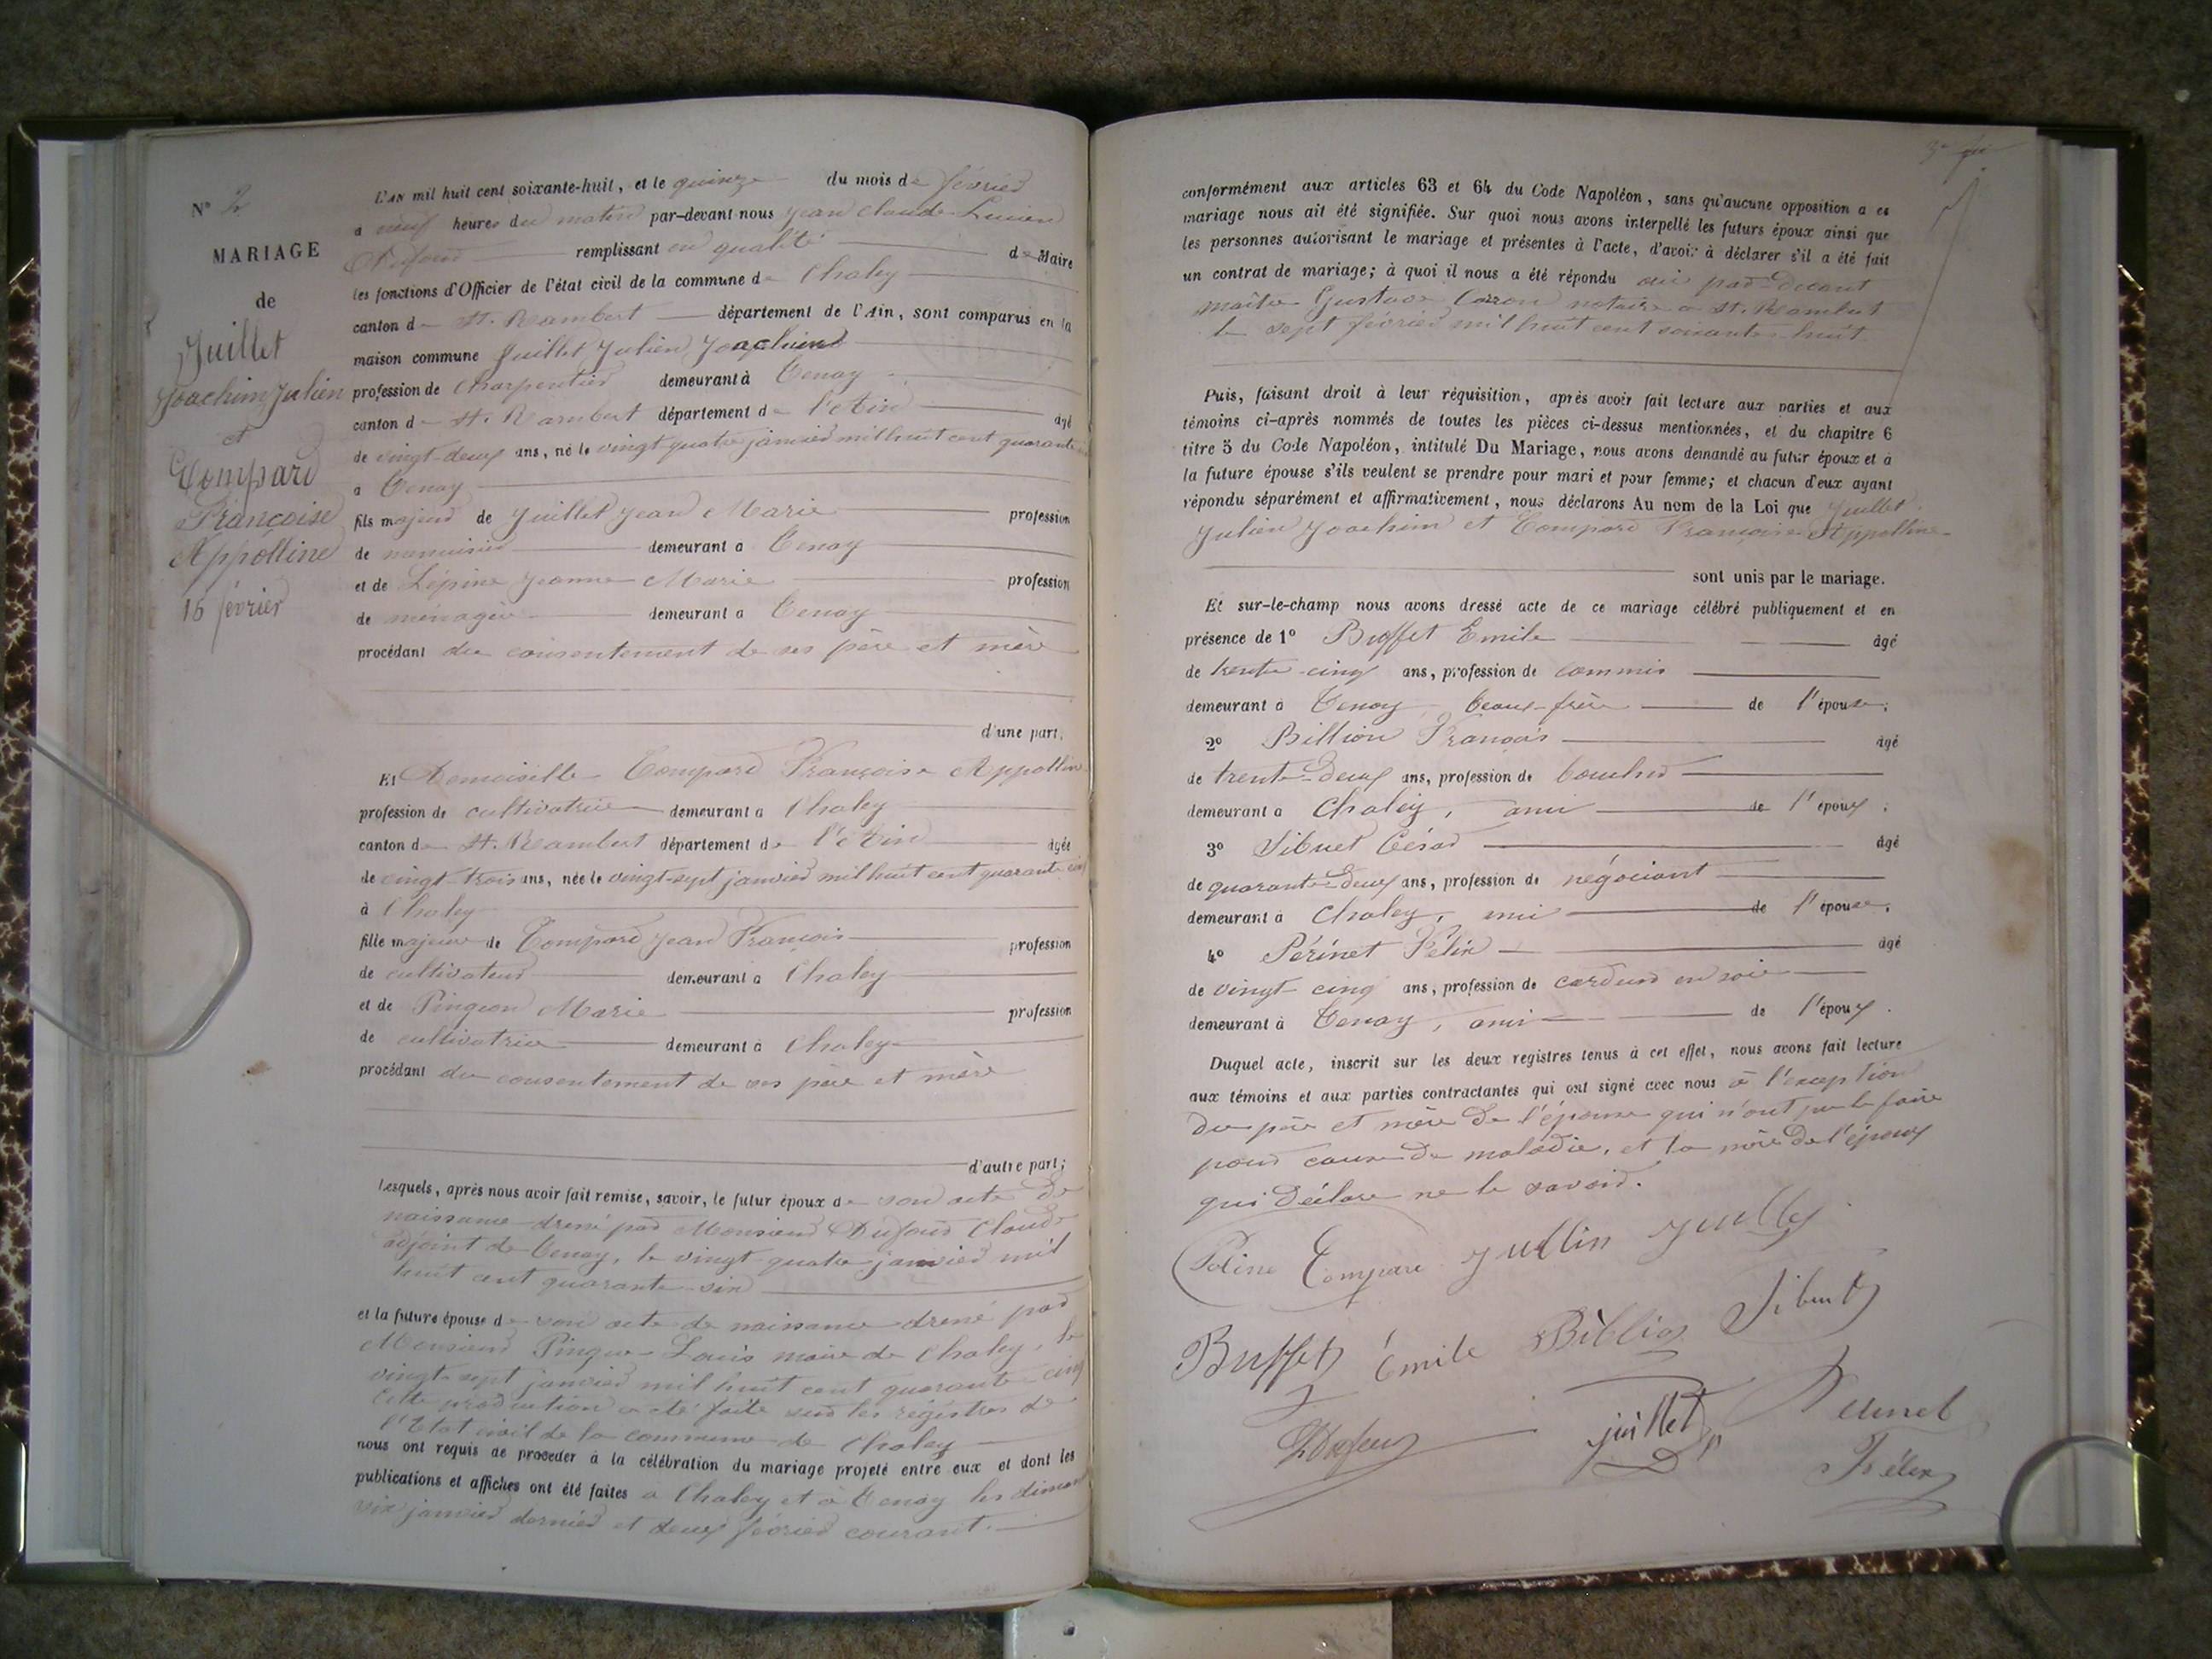 N° 2
MARIAGE
de
Juillet
Joachim Julien
et
Compard
Françoise
Appolline
15 février
L'AN mil huit cent soixante-huit, et le quinze du mois de février
a neuf heures du matin par-devant nous Jean Claude Lucien
Dufour remplissant en qualité de Maire
les fonctions d'Officier de l'état civil de la commune de Chaley
canton de St. Rambert département de l'Ain, sont comparus en la
maison commune Juillet Julien Joachim
profession de Charpentier demeurant à Tenay
canton de St. Rambert département de l'Ain âgé
de vingt-deux ans, né le vingt quatre janvier mil huit cent quarante
a Tenay
fils majeur de Juillet Jean Marie profession
de menuisier demeurant a Tenay
et de Lépine Jeanne Marie profession
de ménagère demeurant a Tenay
procédant du consentement de ses père et mère
d'une part,
Et Demoiselle Compard Françoise Appolline
profession de cultivatrice demeurant a Chaley
canton de St. Rambert département de l'Ain âgée
de vingt-trois ans, née le vingt-sept janvier mil huit cent quarante cinq
à Chaley
fille majeure de Compard Jean François profession
de cultivateur demeurant a Chaley
et de Pingeon Marie profession
de cultivatrice demeurant à Chaley
procédant du consentement de ses père et mère
d'autre part;
Lesquels, après nous avoir fait remise, savoir, le futur époux de son acte de
naissance dressé par Monsieur Dufour Claude
adjoint de Tenay, le vingt quatre janvier mil
huit cent quarante-six
et la future épouse de son acte de naissance dressé par
Monsieur Louis maire de Chaley, le
vingt-sept janvier mil huit cent quarante-cinq
cette production a été faite sur les régistres de
l'Etat civil de la commune de Chaley
nous ont requis de procéder à la célébration du mariage projeté entre eux et dont les
publications et affiches ont été faites a Chaley et à Tenay les
janvier dernier et deux février courant.
conformément aux articles 63 et 64 du Code Napoléon, sans qu'aucune opposition a ce
mariage nous ait été signifiée. Sur quoi nous avons interpellé les futurs époux ainsi que
les personnes autorisant le mariage et présentes à l'acte, d'avoir à déclarer s'il a été fait
un contrat de mariage; à quoi il nous a été répondu oui par devant
maître Gustave notaire a St. Rambert
le sept février mil huit cent soixante-huit.
Puis, faisant droit à leur réquisition, après avoir fait lecture aux parties et aux
témoins ci-après nommés de toutes les pièces ci-dessus mentionnées, et du chapitre 6
titre 5 du Code Napoléon, intitulé Du Mariage, nous avons demandé au futur époux et à
la future épouse s'ils veulent se prendre pour mari et pour femme; et chacun d'eux ayant
répondu séparément et affirmativement, nous déclarons Au nom de la Loi que Juillet
Julien Joachim et Compard Françoise Appolline
sont unis par le mariage.
Et sur-le-champ nous avons dressé acte de ce mariage célébré publiquement et en
présence de 1° Buffet Emile âgé
de trente-cinq ans, profession de commis
demeurant à Tenay beau-frère de l'épouse;
2° Billion François âgé
de trente-deux ans, profession de boucher
demeurant a Chaley, ami de l'époux;
3° Sibuet César âgé
de quarante-deux ans, profession de négociant
demeurant à Chaley, ami de l'épouse;
4° Périnet Félix âgé
de vingt-cinq ans, profession de cardeur en soie
demeurant à Tenay, ami de l'époux.
Duquel acte, inscrit sur les deux registres tenus à cet effet, nous avons fait lecture
aux témoins et aux parties contractantes qui ont signé avec nous à l'exception
du père et mère de l'épouse qui n'ont pu le faire
pour cause de maladie, et la mère de l'époux
qui déclare ne le savoir.
Poline Compare
Buffet Emile Sibuet
juillet
Félix